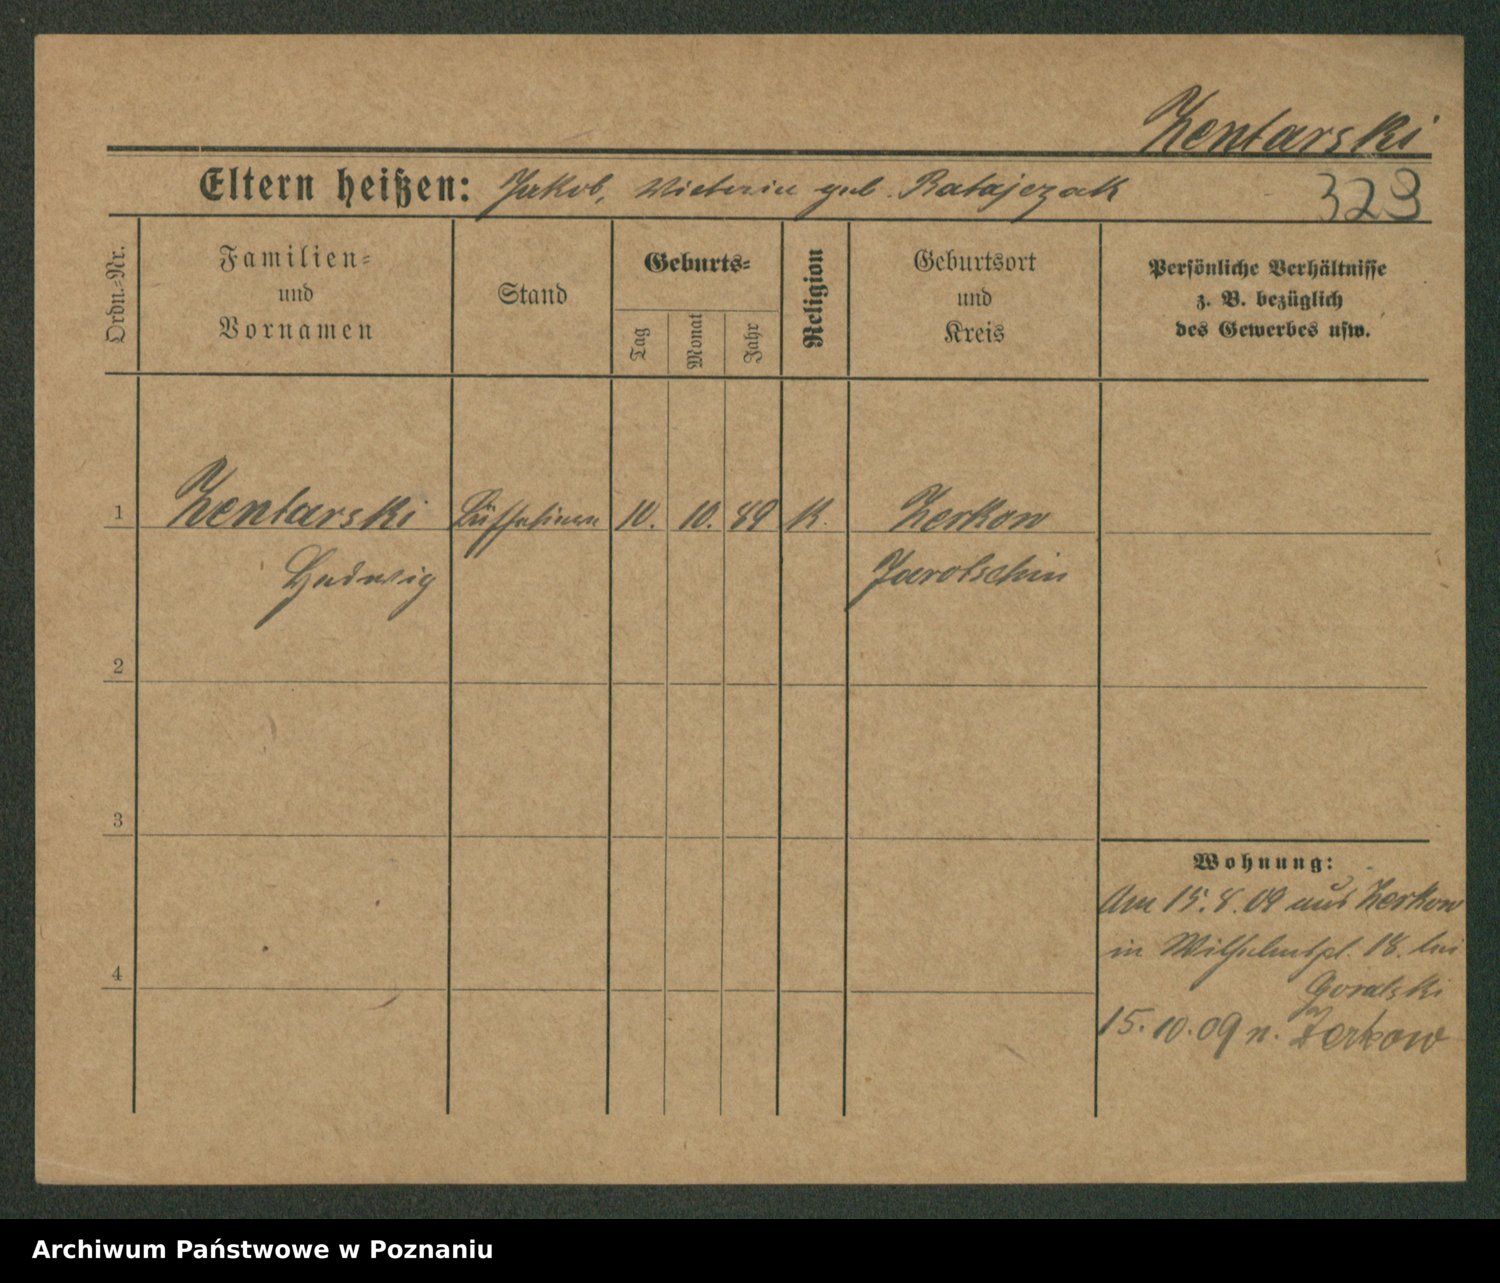 Zentarski
Eltern heißen: Jakob, Victoria geb. Ratajczak
323
Ordn.-Nr.
Familien-
und
Vornamen
Stand
Geburts-
Tag
Monat
Jahr
Religion
Geburtsort
und
Kreis
Persönliche Verhältnisse
z. B. bezüglich
des Gewerbes usw.
1 Zentarski 10. 10. 89 K. Zerkow
Hedwig Jarotschin
2
3
4
Wohnung:
Am 15.8.09 aus Zerkow
in Wilhelmspl. 18. bei
Goralski
15.10.09 n. Zerkow
Archiwum Państwowe w Poznaniu